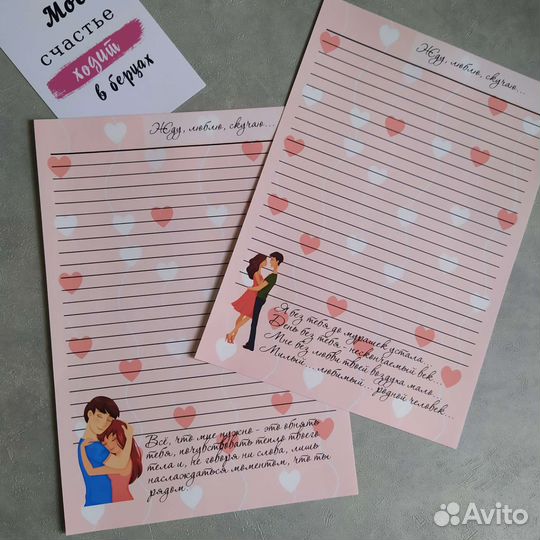 Моё
счастье
ходит
в берцах
Жду, люблю, скучаю...
Жду, люблю, скучаю...
Я без тебя до мурашек устала
День без тебя - нескончаемый век...
Мне без любви твоей воздуха мало...
Милый... любимый... родной человек...
Всё, что мне нужно - это обнять
тебя, почувствовать тепло твоего
тела и, не говоря ни слова, лишь
наслаждаться моментом, что ты
рядом.
Avito